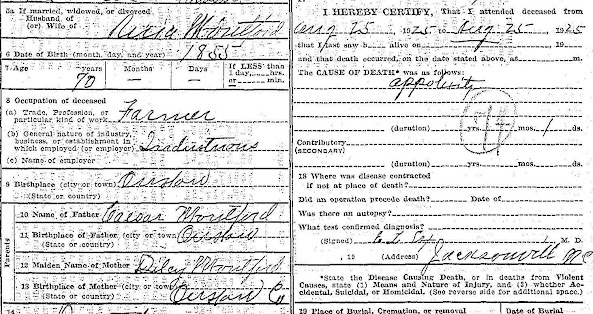 5a If married, widowed, or divorced
Husband of
(or) Wife of
Montford
6 Date of Birth (month, day, and year) 1855
7 Age Years Months Days If LESS than
70 1 day,....hrs.
or....min.
8 Occupation of deceased
(a) Trade, Profession, or
particular kind of work Farmer
(b) General nature of industry,
business, or establishment in
which employed (or employer) Industrious
(c) Name of employer
9 Birthplace (city or town) Onslow
(State or country)
Parents
10 Name of Father Caesar Montford
11 Birthplace of Father (city or town) Onslow
(State or country)
12 Maiden Name of Mother Dilcy Montford
13 Birthplace of Mother (city or town)
(State or country) Onslow Co
14
I HEREBY CERTIFY, That I attended deceased from
Aug 25 1925 to Aug 25 1925
that I last saw h alive on 19
and that death occurred, on the date stated above, at m.
The CAUSE OF DEATH* was as follows:
appolexity
(duration) yrs. mos. 1 ds.
Contributory
(SECONDARY)
(duration) yrs. mos. ds.
18 Where was disease contracted
if not at place of death?
Did an operation precede death? Date of
Was there an autopsy?
What test confirmed diagnosis?
(Signed) M. D.
, 19 (Address) Jacksonvill NC
*State the Disease Causing Death, or in deaths from Violent
Causes, state (1) Means and Nature of Injury, and (2) whether Ac-
cidental, Suicidal, or Homicidal. (See reverse side for additional space.)
19 Place of Burial, Cremation, or removal Date of Burial